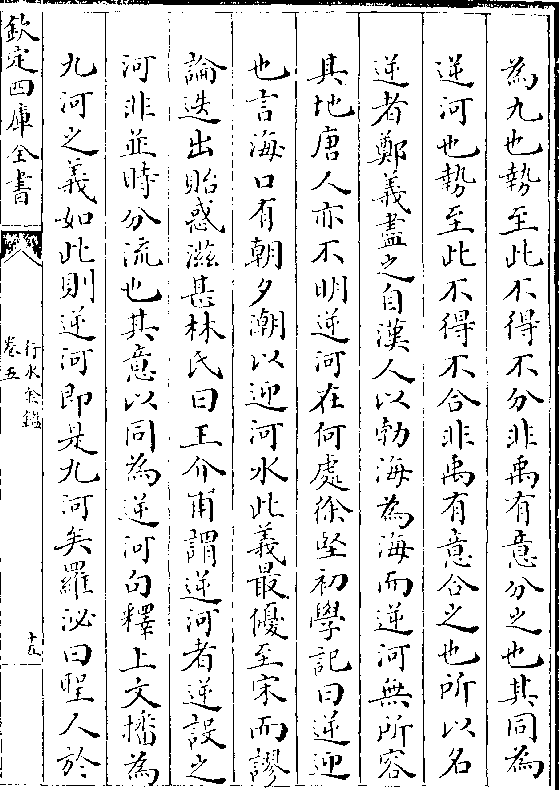 為九也勢至此不得不分非禹有意分之也其同為
逆河也勢至此不得不合非禹有意合之也所以名
逆者鄭義盡之自漢人以勃海為海而逆河無所容
其地唐人亦不明逆河在何處徐堅初學記曰逆迎
也言海口有朝夕潮以迎河水此義最優至宋而謬
論迭出貽惑滋甚林氏曰王介甫謂逆河者逆設之
河非並時分流也其意以同為逆河句釋上文播為
九河之義如此則逆河即是九河矣羅泌曰聖人於
欽定四庫全書
行水金鑑
卷五
十五